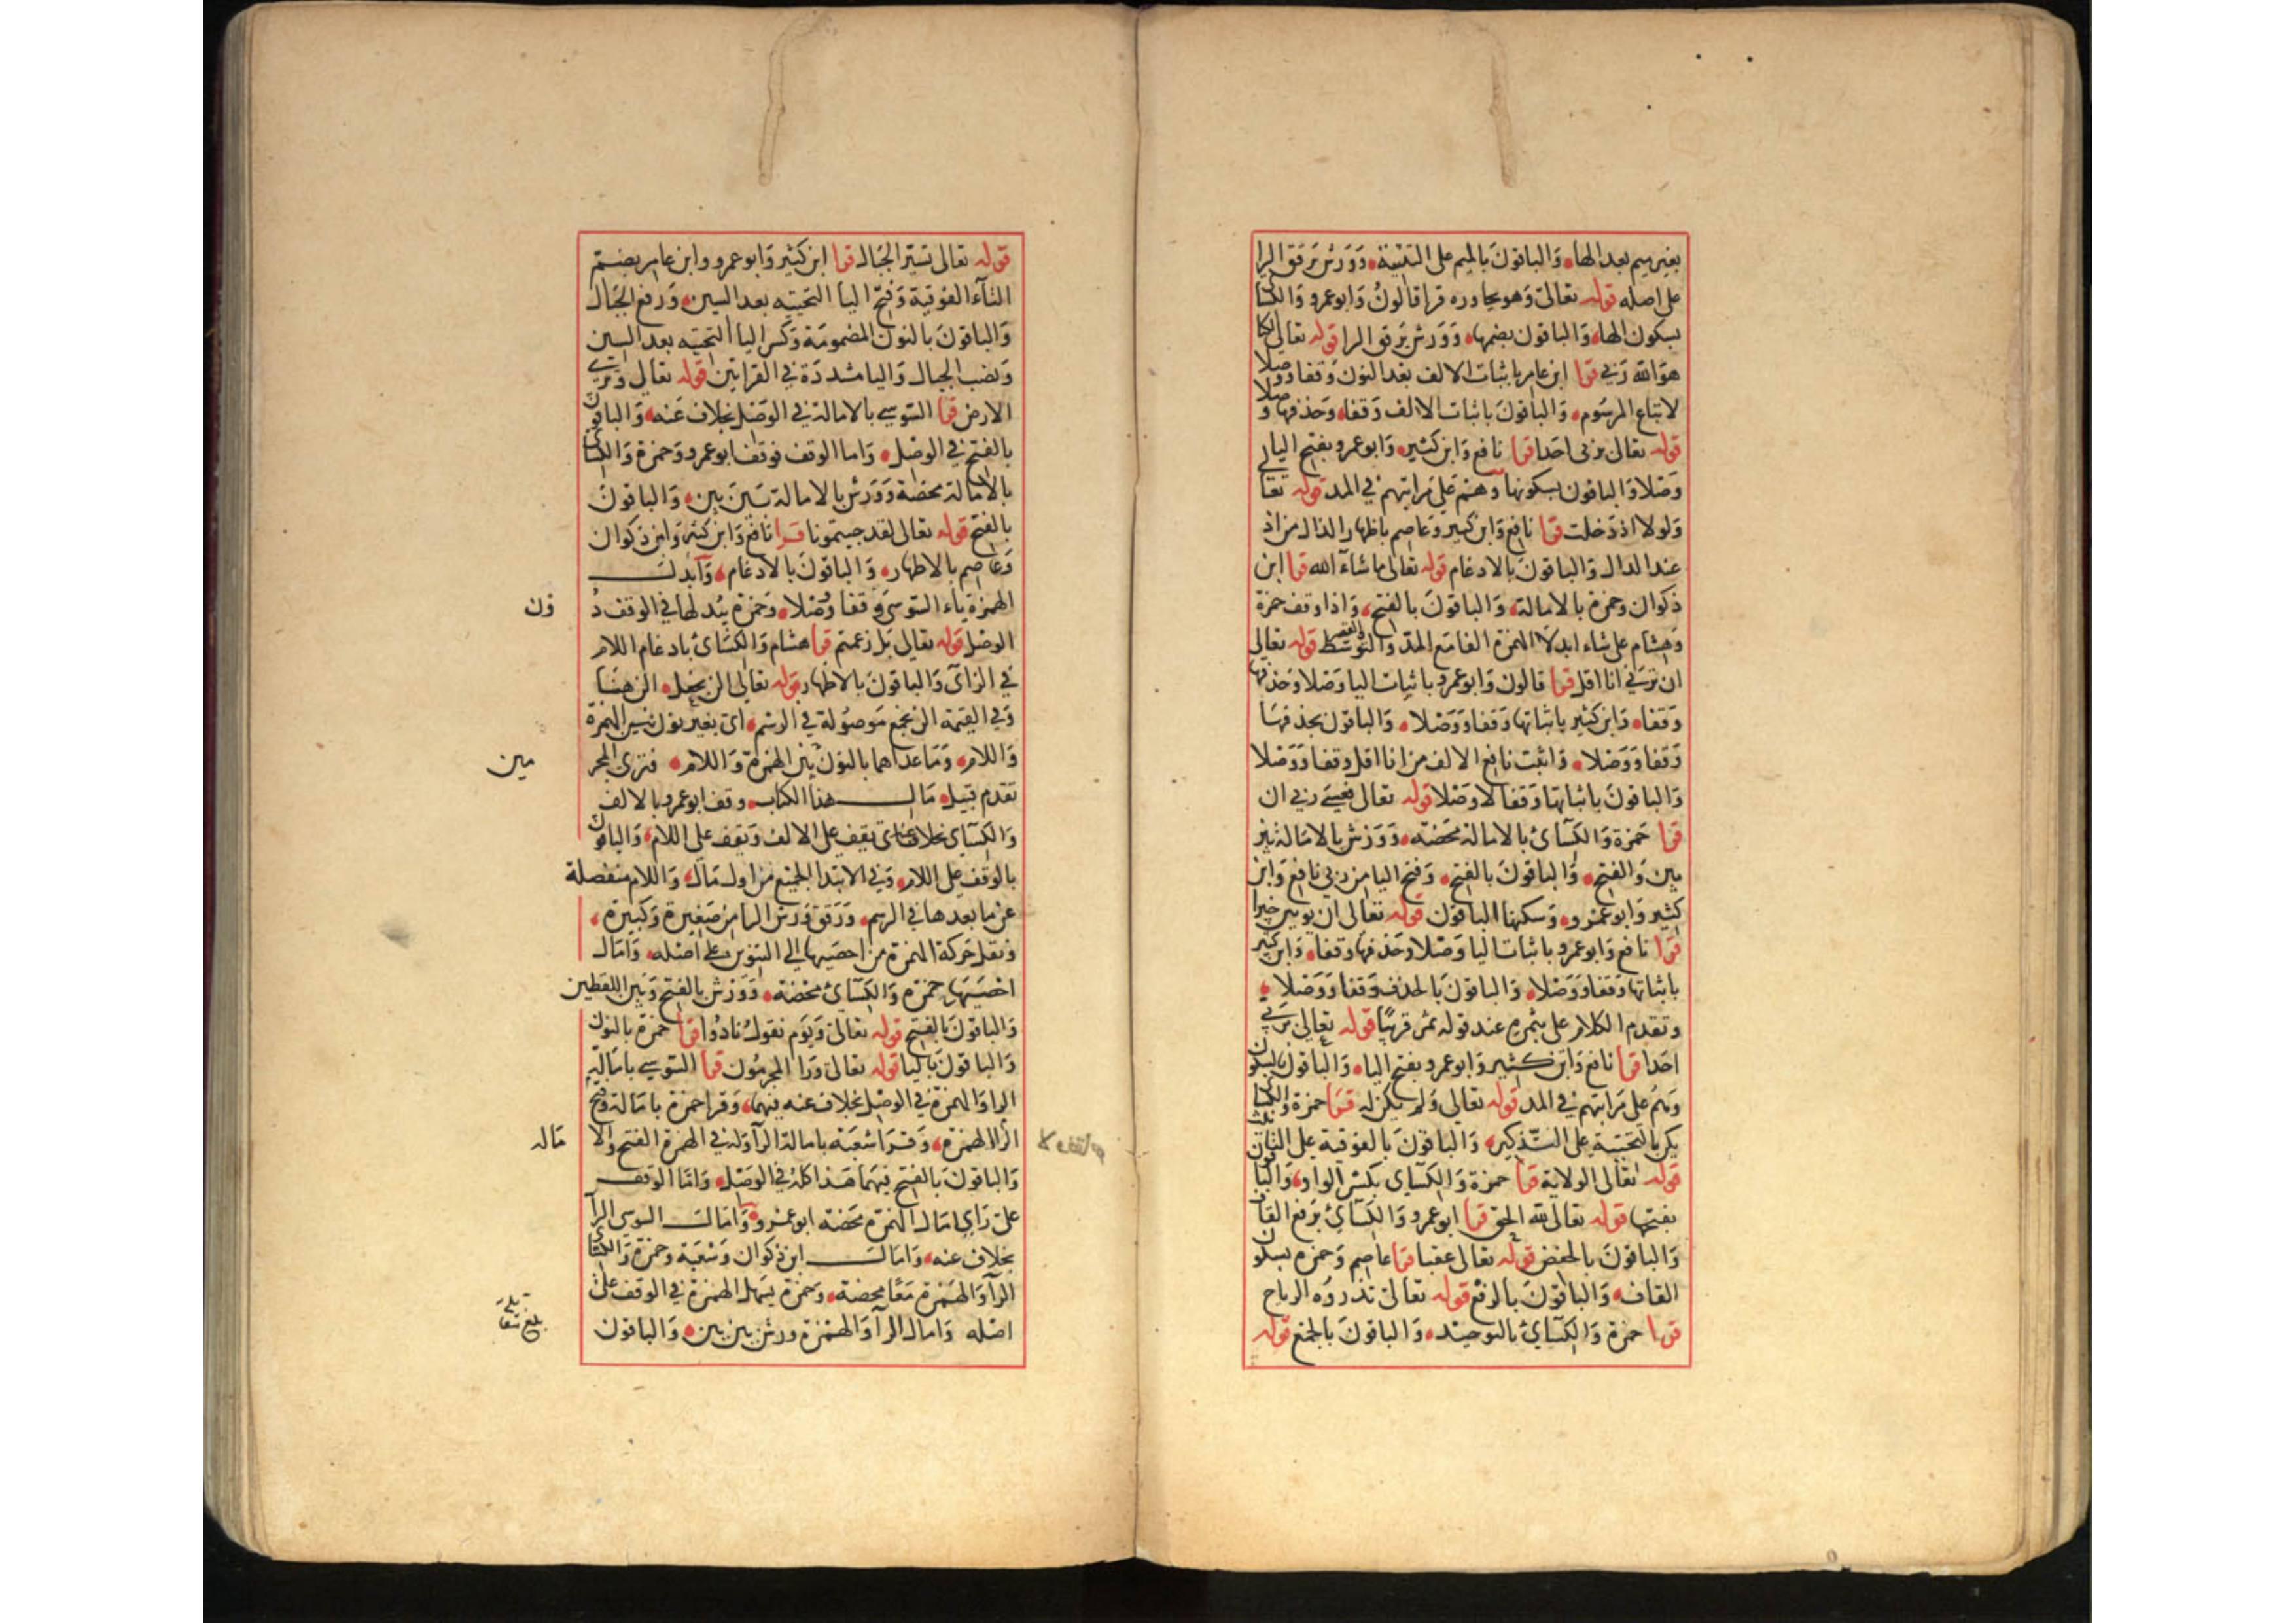 بغير ميم بعد الها، والباقون بالميم على التثنية، وورش يرقق الرا
على اصله قوله تعالى وهو يحاوره قرا قالون وابو عمرو والكسا
بسكون الها، والباقون بضمها، وورش يرقق الرا قوله تعالى لكنا
هو الله ربي قرا ابن عامر باثبات الالف بعد النون وقفا ووصلا
لاتباع المرسوم، والباقون باثبات الالف وقفا، وحذفها وصلا
قوله تعالى بربى احدا قرا نافع وابن كثير، وابو عمرو بفتح اليا
وصلا والباقون بسكونها وهم على مراتبهم في المد قوله تعالى
ولولا اذ دخلت قرا نافع وابن كثير وعاصم باظهار الذال من اذ
عند الدال والباقون بالادغام قوله تعالى ما شاء الله قرا ابن
ذكوان وحمزة بالامالة، والباقون بالفتح، واذا وقف حمزة
وهشام على شاء ابدلا الهمزة الفا مع المد والتوسط والقصر قوله تعالى
ان ترني انا اقل قرا قالون وابو عمرو باثبات اليا وصلا وحذفها
وقفا، وابن كثير باثباتها وقفا ووصلا، والباقون بحذفها
وقفا ووصلا، واثبت نافع الالف من انا اقل وقفا ووصلا
والباقون باثباتها وقفا لا وصلا قوله تعالى فعسى ربي ان
قرا حمزة والكسائ بالامالة محضة، وورش بالامالة بين
بين والفتح، والباقون بالفتح، وفتح اليا من ربي نافع وابن
كثير وابو عمرو، وسكنها الباقون قوله تعالى ان يوتين خيرا
قرا نافع وابو عمرو باثبات اليا وصلا وحذفها وقفا، وابن كثير
باثباتها وقفا ووصلا، والباقون بالحذف وقفا ووصلا،
وتقدم الكلام على بثمره عند قوله ثمر قريبا قوله تعالى بربي
احدا قرا نافع وابن كثير وابو عمرو بفتح الياء، والباقون بالسكون
وهم على مراتبهم في المد قوله تعالى ولم يكن له قرا حمزة والكسا
يكن بالتحتية على التذكير، والباقون بالفوقية على التانيث
قوله تعالى الولاية قرا حمزة والكسائ بكسر الواو، والبا
بفتحها قوله تعالى لله الحق قرا ابو عمرو والكسائ برفع القاف
والباقون بالخفض قوله تعالى عقبا قرا عاصم وحمزه بسكون
القاف، والباقون بالرفع قوله تعالى تذروه الرياح
قرا حمزة والكسائ بالتوحيد، والباقون بالجمع قوله
قوله تعالى تسير الجبال قرا ابن كثير وابو عمرو وابن عامر بضم
التاء الفوقية وفتح اليا التحتيه بعد السين، ورفع الجبال
والباقون بالنون المضمومة وكسر اليا التحتيه بعد السين
ونصب الجبال واليا مشددة في القراتين قوله تعالى وترى
الارض قرا السوسي بالامالة في الوصل بخلاف عنه، والباقون
بالفتح في الوصل، واما الوقف فوقف ابو عمرو وحمزة والكسا
بالامالة محضة وورش بالامالة بين بين، والباقون
بالفتح قوله تعالى لقد جيتمونا قرا نافع وابن كثير وابن ذكوان
وعاصم بالاظهار، والباقون بالادغام، وابدل
الهمزة ياء السوسى وقفا ووصلا، وحمزة يبدلها في الوقف د
ون
الوصل قوله تعالى بل زعمتم قرا هشام والكسائ بادغام اللام
في الزاى والباقون بالاظهار قوله تعالى الن نجعل، الن هنا
وفي القيمة الن نجمع موصولة في الرسم، اى بغير نون بين الهمزة
واللام، وما عداهما بالنون بين الهمزة واللام، فترى المجر
مين
تقدم قبيل، مال هذا الكتاب، وقف ابو عمرو بالالف
والكسائ بخلاف عنه اى يقف على الالف ويقف على اللام، والباقون
بالوقف على اللام، وفي الابتدا الجميع من اول مال، واللام منفصلة
عن ما بعدها في الرسم، ورقق ورش الرا من صغيرة وكبيرة،
ونقل حركة الهمزة من احصيها الى التنوين على اصله، وامال
احصيها حمزه والكسائ محضة، وورش بالفتح وبين اللفظين
والباقون بالفتح قوله تعالى ويوم نقول نادوا قرا حمزة بالنون
والباقون باليا قوله تعالى ورا المجرمون قرا السوسي بامالة
الرا والهمزة في الوصل بخلاف عنه فيهما، وقرا حمزة بامالة وفتح
الرا الهمزه، وقرا شعبة بامالة الرا وله في الهمزة الفتح والا
مالة
والباقون بالفتح فيهما هذا كله في الوصل، واما الوقف
على راى امال الهمزه محضه ابو عمرو، وامال السوسي الرا
بخلاف عنه، وامال ابن ذكوان وشعبة وحمزة والكسا
الرا والهمزة معا محضة، وحمزة يسهل الهمزة في الوقف على
اصله وامال الرا والهمزة ورش بين بين، والباقون
بلغ مقا بلة